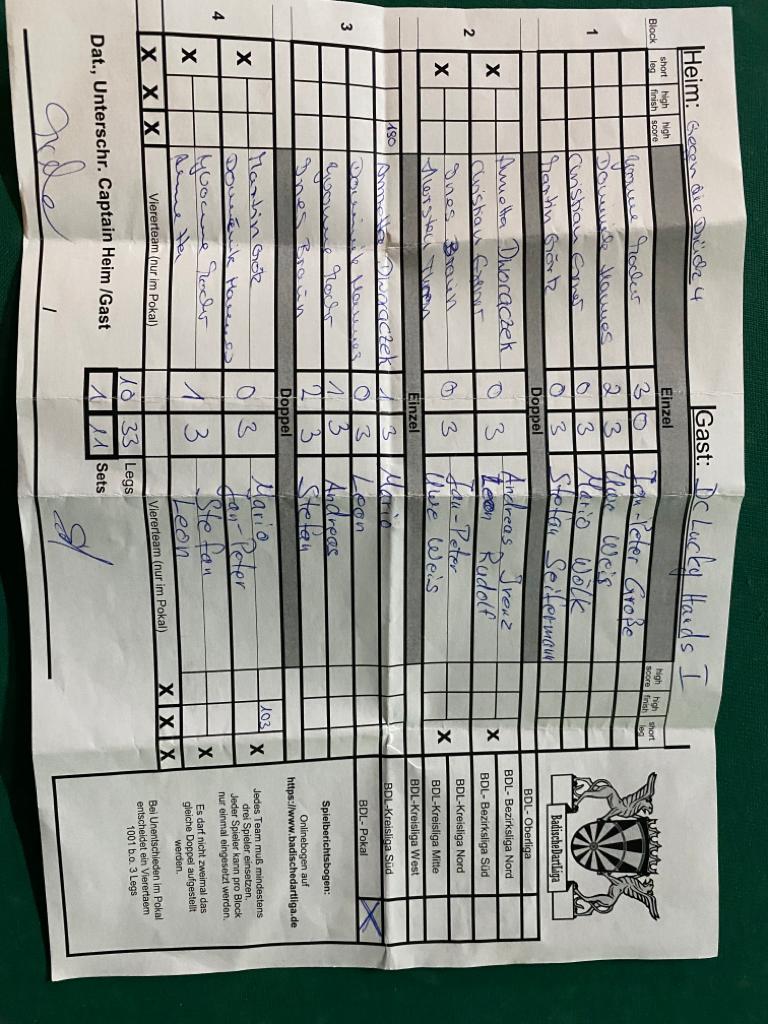 Heim: Gegen die Drücke 4 Gast: Dc Lucky Hands I
Block short leg high finish high score Einzel high score high finish short leg
1 3 0 Jan-Peter Große
Dominik Hannes 2 3 Uwe Weis
Christian 0 3 Mario Wölk
Martin 0 3 Stefan Seifermann
Doppel
2 X Annetta Dworaczek 0 3 Andreas X
Christian Leon Rudolf
X Ines Braun 0 3 Jan-Peter X
Uwe Weis
Einzel
3 180 Annetta Dworaczek 1 3 Mario
Dominik Hannes 0 3 Leon
Yvonne 1 3 Andreas
Ines Braun 2 3 Stefan
Doppel
4 X Martin 0 3 Mario 103 X
Dominik Hannes Jan-Peter
X Yvonne 1 3 Stefan X
Leon
X X X Viererteam (nur im Pokal) Viererteam (nur im Pokal) X X X
10 33 Legs
1 11 Sets
Dat., Unterschr. Captain Heim /Gast
/
BadischeDartLiga
BDL- Oberliga
BDL- Bezirksliga Nord
BDL- Bezirksliga Süd
BDL-Kreisliga Nord
BDL-Kreisliga Mitte
BDL-Kreisliga West
BDL-Kreisliga Süd
BDL- Pokal X
Spielberichtsbogen:
Onlinebogen auf
https://www.badischedartliga.de
Jedes Team muß mindestens
drei Spieler einsetzen.
Jeder Spieler kann pro Block
nur einmal eingesetzt werden.
Es darf nicht zweimal das
gleiche Doppel aufgestellt
werden.
Bei Unentschieden im Pokal
entscheidet ein Vierertaem
1001 b.o. 3 Legs